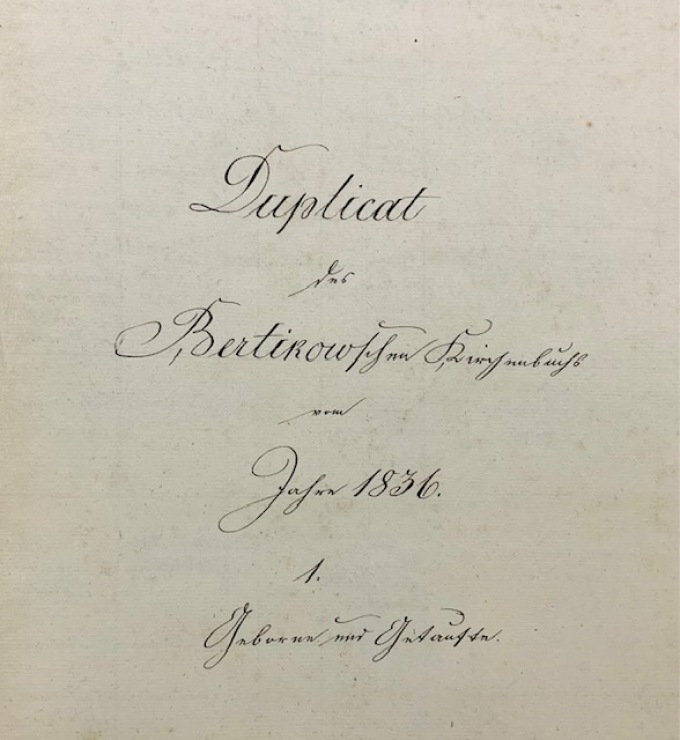 Duplicat
des
Bertikowschen Kirchenbuchs
vom
Jahre 1836.
1.
Geborne und Getaufte.